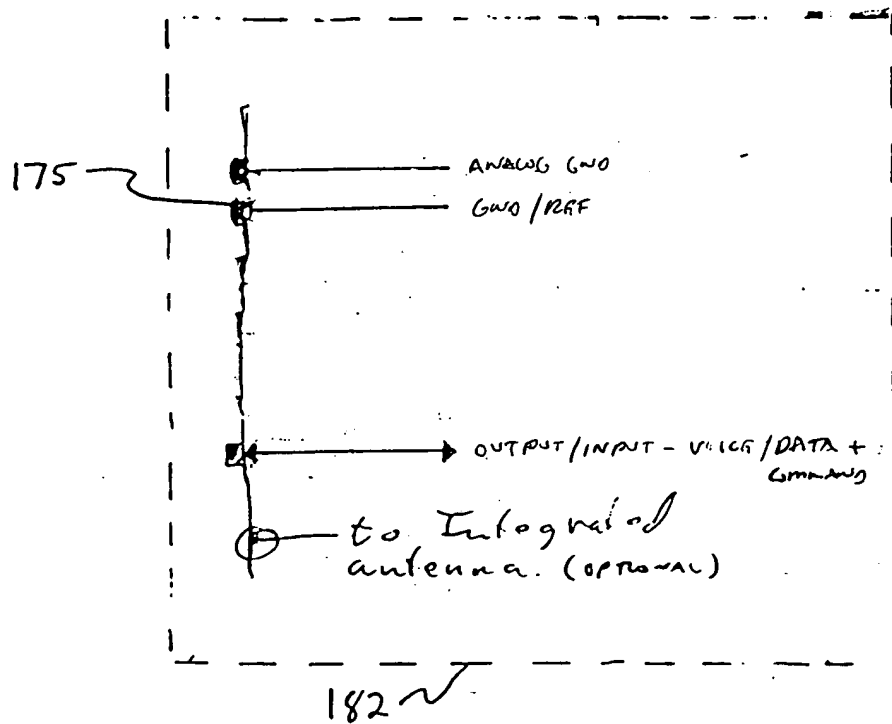 175
ANALOG GND
GND/REF
OUTPUT/INPUT - VOICE/DATA +
COMMAND
to Integrated
antenna. (OPTIONAL)
182